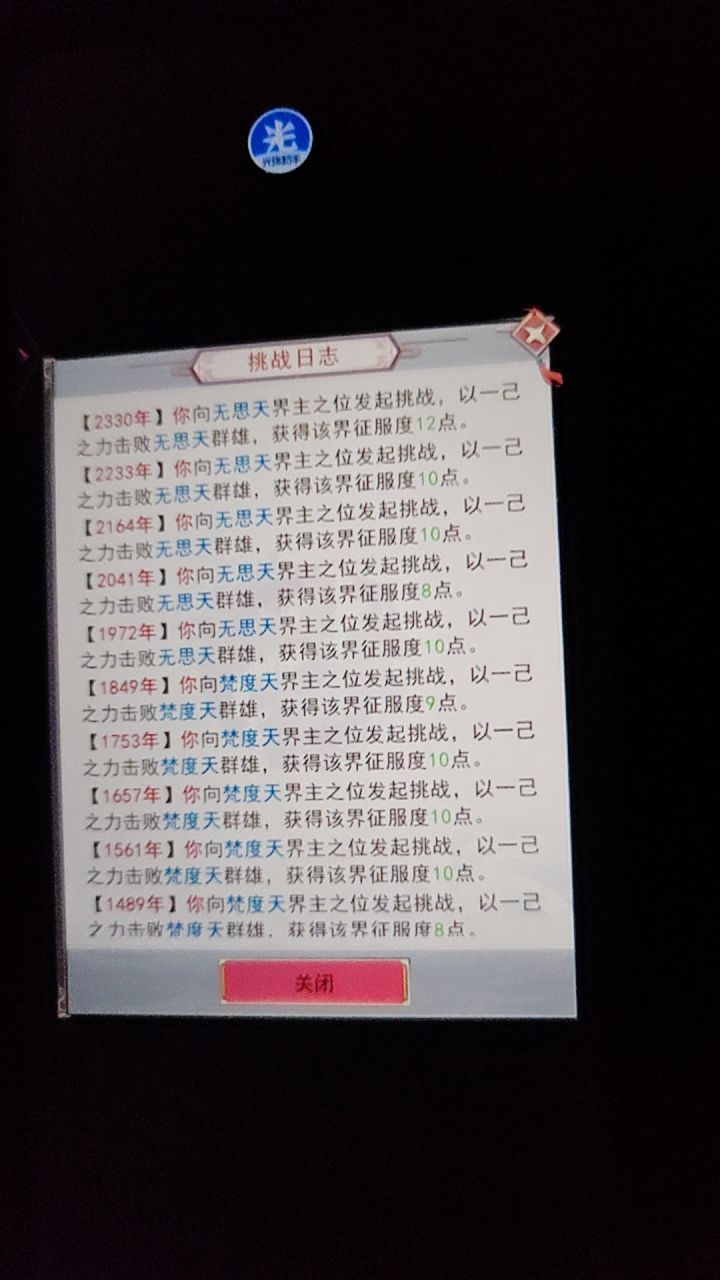 光
光环助手
挑战日志
【2330年】你向无思天界主之位发起挑战，以一己
之力击败无思天群雄，获得该界征服度12点。
【2233年】你向无思天界主之位发起挑战，以一己
之力击败无思天群雄，获得该界征服度10点。
【2164年】你向无思天界主之位发起挑战，以一己
之力击败无思天群雄，获得该界征服度10点。
【2041年】你向无思天界主之位发起挑战，以一己
之力击败无思天群雄，获得该界征服度8点。
【1972年】你向无思天界主之位发起挑战，以一己
之力击败无思天群雄，获得该界征服度10点。
【1849年】你向梵度天界主之位发起挑战，以一己
之力击败梵度天群雄，获得该界征服度9点。
【1753年】你向梵度天界主之位发起挑战，以一己
之力击败梵度天群雄，获得该界征服度10点。
【1657年】你向梵度天界主之位发起挑战，以一己
之力击败梵度天群雄，获得该界征服度10点。
【1561年】你向梵度天界主之位发起挑战，以一己
之力击败梵度天群雄，获得该界征服度10点。
【1489年】你向梵度天界主之位发起挑战，以一己
之力击败梵度天群雄，获得该界征服度8点。
关闭